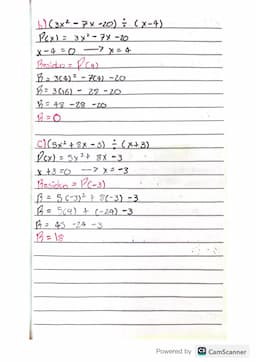 b) (3x² - 7x -20) ÷ (x-4)
P(x) = 3x² - 7x -20
x-4 = 0 → x = 4
Residuo = P(4)
R = 3(4)² - 7(4) -20
R = 3(16) - 28 -20
R = 48 -28 -20
R = 0
c) (5x² + 8x - 3) ÷ (x+3)
P(x) = 5x² + 8x -3
x +3 = 0 --> x = -3
Residuo = P(-3)
R = 5(-3)² + 8(-3) -3
R = 5(9) + (-24) -3
R = 45 -24 -3
R = 18
Powered by CS CamScanner